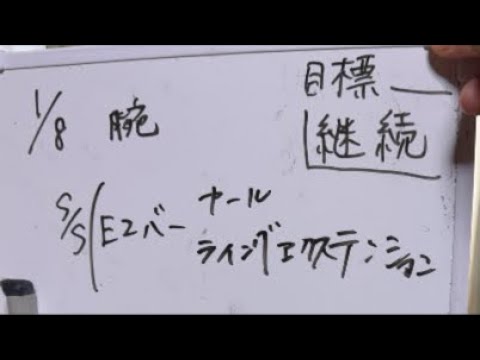 1/8 腕
目標
継続
S/S EZバー カール
ライイングエクステンション